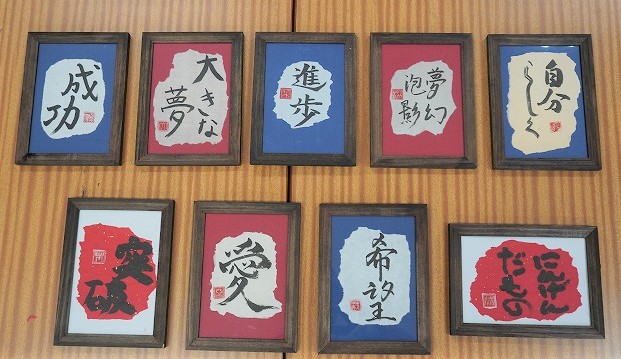 成功
大きな
夢
進歩
夢幻
泡影
自分
らしく
突
破
愛
希望
にんげん
だもの